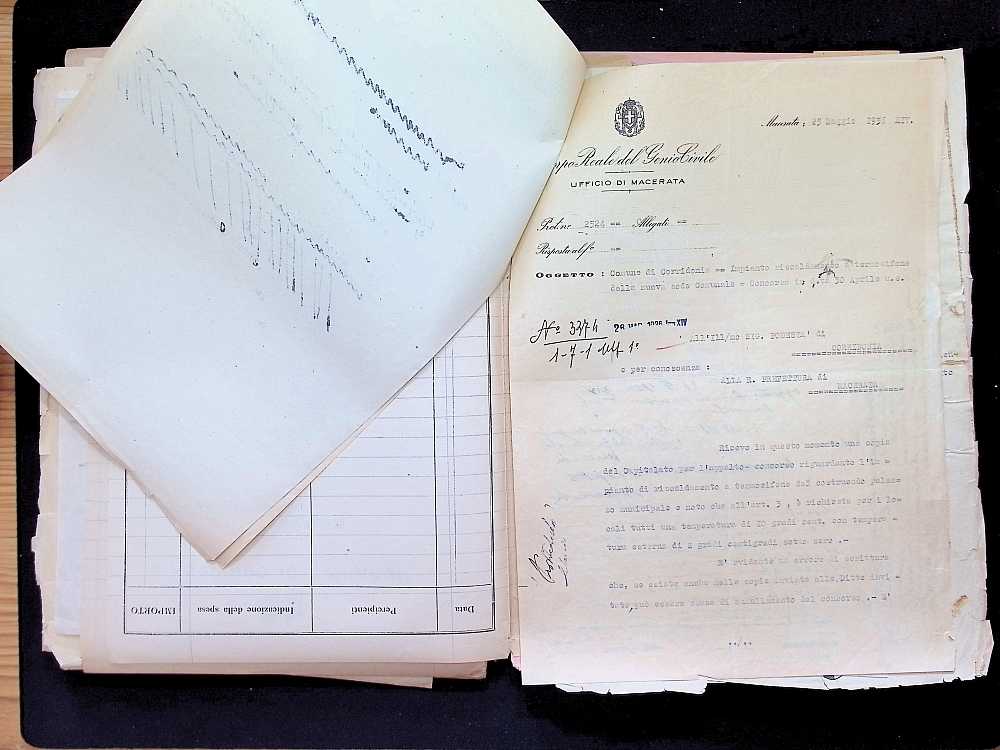 Macerata, 25 Maggio 1936 XIV.
ppo Reale del Genio Civile
UFFICIO DI MACERATA
Prot. no 2524 == Allegati ==
Risposta al fo ==
OGGETTO : Comune di Corridonia == Impianto riscaldamento a termosifone
della nuova sede Comunale = Concorso in data 30 Aprile u.s.
No 3374
1-7-1
All'Ill/mo SIG. PODESTA' di
CORRIDONIA
e per conoscenza :
ALLA R. PREFETTURA di
MACERATA
Ricevo in questo momento una copia
del Capitolato per l'appalto- concorso riguardante l'im =
pianto di riscaldamento a termosifone del costruendo palaz=
zo municipale e noto che all'art. 3 , è richiesta per i lo=
cali tutti una temperatura di 10 gradi cent. con tempera =
tura esterna di 2 gradi centigradi sotto zero .-
E' evidente un errore di scrittura
che, se esiste anche nelle copie inviate alle Ditte invi =
tate, può essere causa di annullamento del concorso .- E'
../..
Data
Percipienti
Indicazione della spesa
IMPORTO